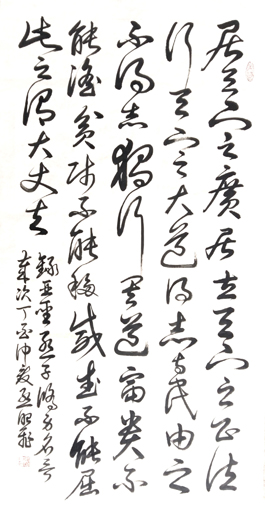 居天下之廣居立天下之正位
行天下之大道得志與民由之
不得志獨行其道富貴不
能淫貧賤不能移威武不能屈
此之謂大丈夫
錄亞聖孟子名言
歲次丁酉仲夏